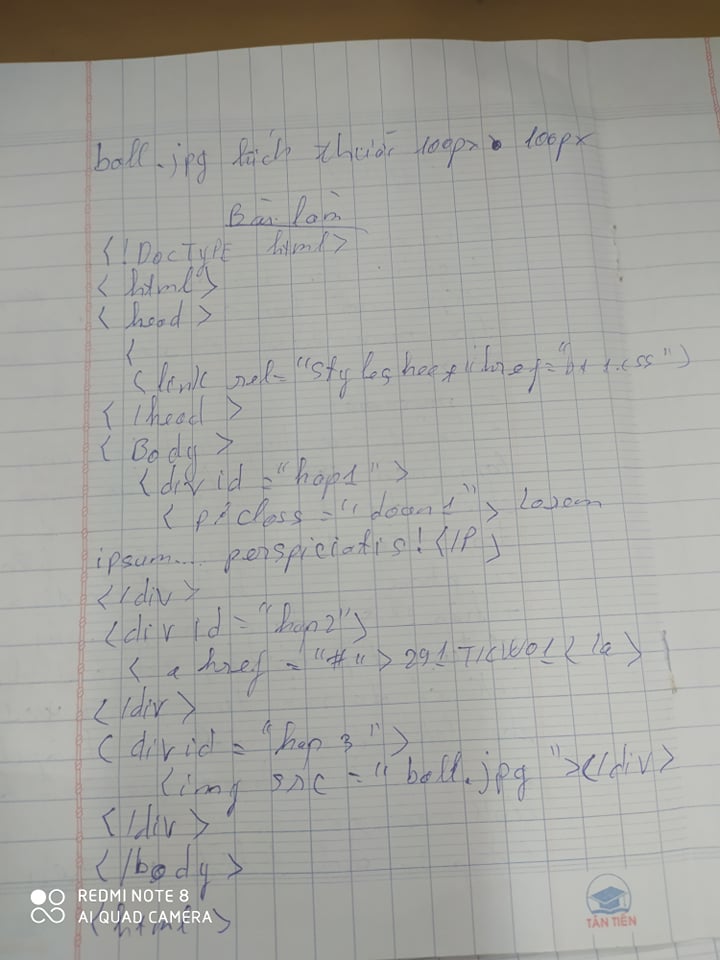 ball.jpg kích thước 100px 100px
Bài làm
<!DOCTYPE html>
<html>
<head>
<
<link rel="stylesheet" href="bt1.css">
</head>
<Body>
<div id="hop1">
<p class="doan1"> Lorem
ipsum.... perspiciatis!</P>
</div>
<div id="hop2">
<a href="#">291TKW01</a>
</div>
<div id="hop3">
<img src="ball.jpg"></div>
</div>
</body>
<html>
REDMI NOTE 8
AI QUAD CAMERA
TÂN TIẾN